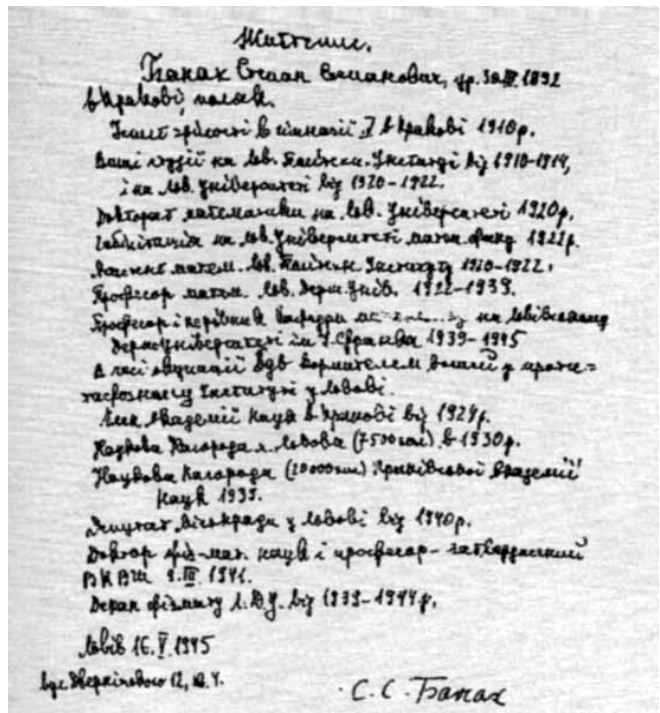 Життєпис.
Банах Степан Степанович, ур. 30.III.1892
в Кракові, поляк.
Іспит зрілості в гімназії I в Кракові 1910р.
на Лвв. Інституті від 1910-1914,
і на Лвв. Університеті від 1920-1922.
Докторат математики на Лвв. Університеті 1920р.
Габілітація на Лвв. Університеті матем. 1922р.
Доцент матем. Лвв. Інституту 1920-1922.
Професор матем. Лвв. Держ. Унів. 1922-1939.
Професор і керівник кафедри на Львівському
Держ. Університеті ім. І. Франка 1939-1945
В часі окупації був кормителем вошей у проти-
тифозному Інституті у Львові.
Член Академії Наук в Кракові від 1924р.
Наукова Нагорода м. Львова (7500 зол) в 1930р.
Наукова Нагорода (20000 зол) Краківської Академії
Наук 1939.
Депутат Міськради у Львові від 1940р.
Доктор фіз-мат. наук і професор - затверджений
ВКВШ 9.III.1941.
Декан фізмату Л.Д.У. від 1939-1944р.
Львів 16.V.1945
вул. 12, м. 4.
С. С. Банах